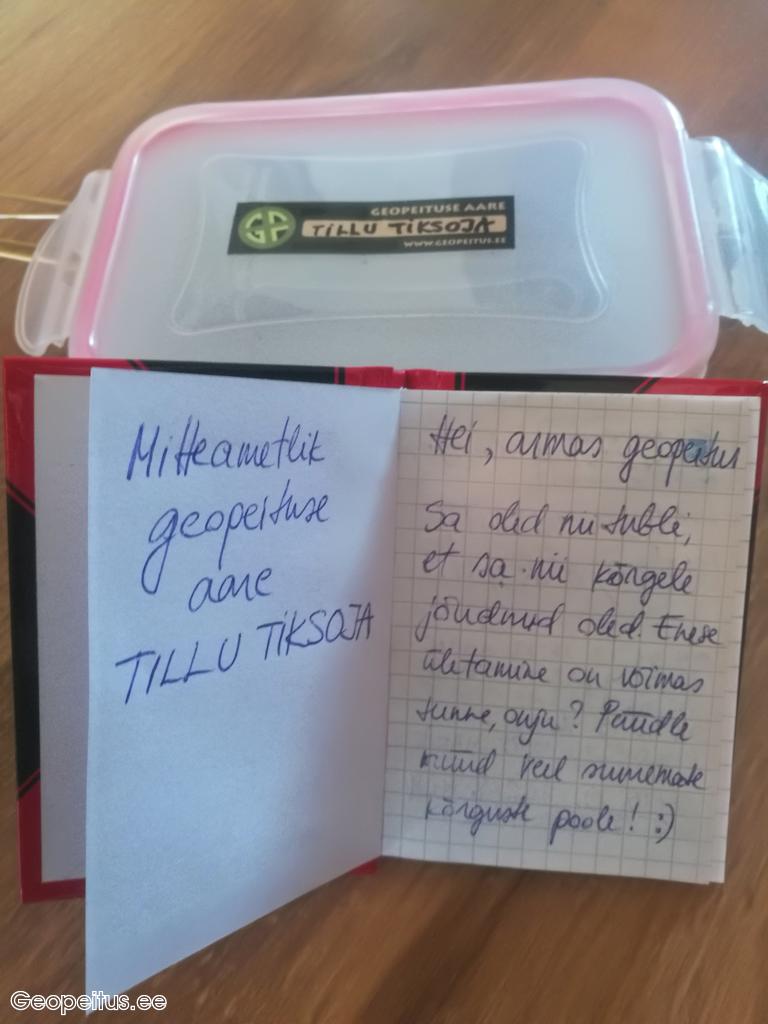 GEOPEITUSE AARE
GP
TILLU TIKSOJA
WWW.GEOPEITUS.EE
Mitteametlik
geopeituse
aare
TILLU TIKSOJA
Hei, armas geopeitur
Sa oled nii tubli,
et sa nii kõrgele
jõudnud oled. Enese
ületamine on võimas
tunne, onju? Püüdle
nüüd veel suuremate
kõrguste poole! :)
Geopeitus.ee